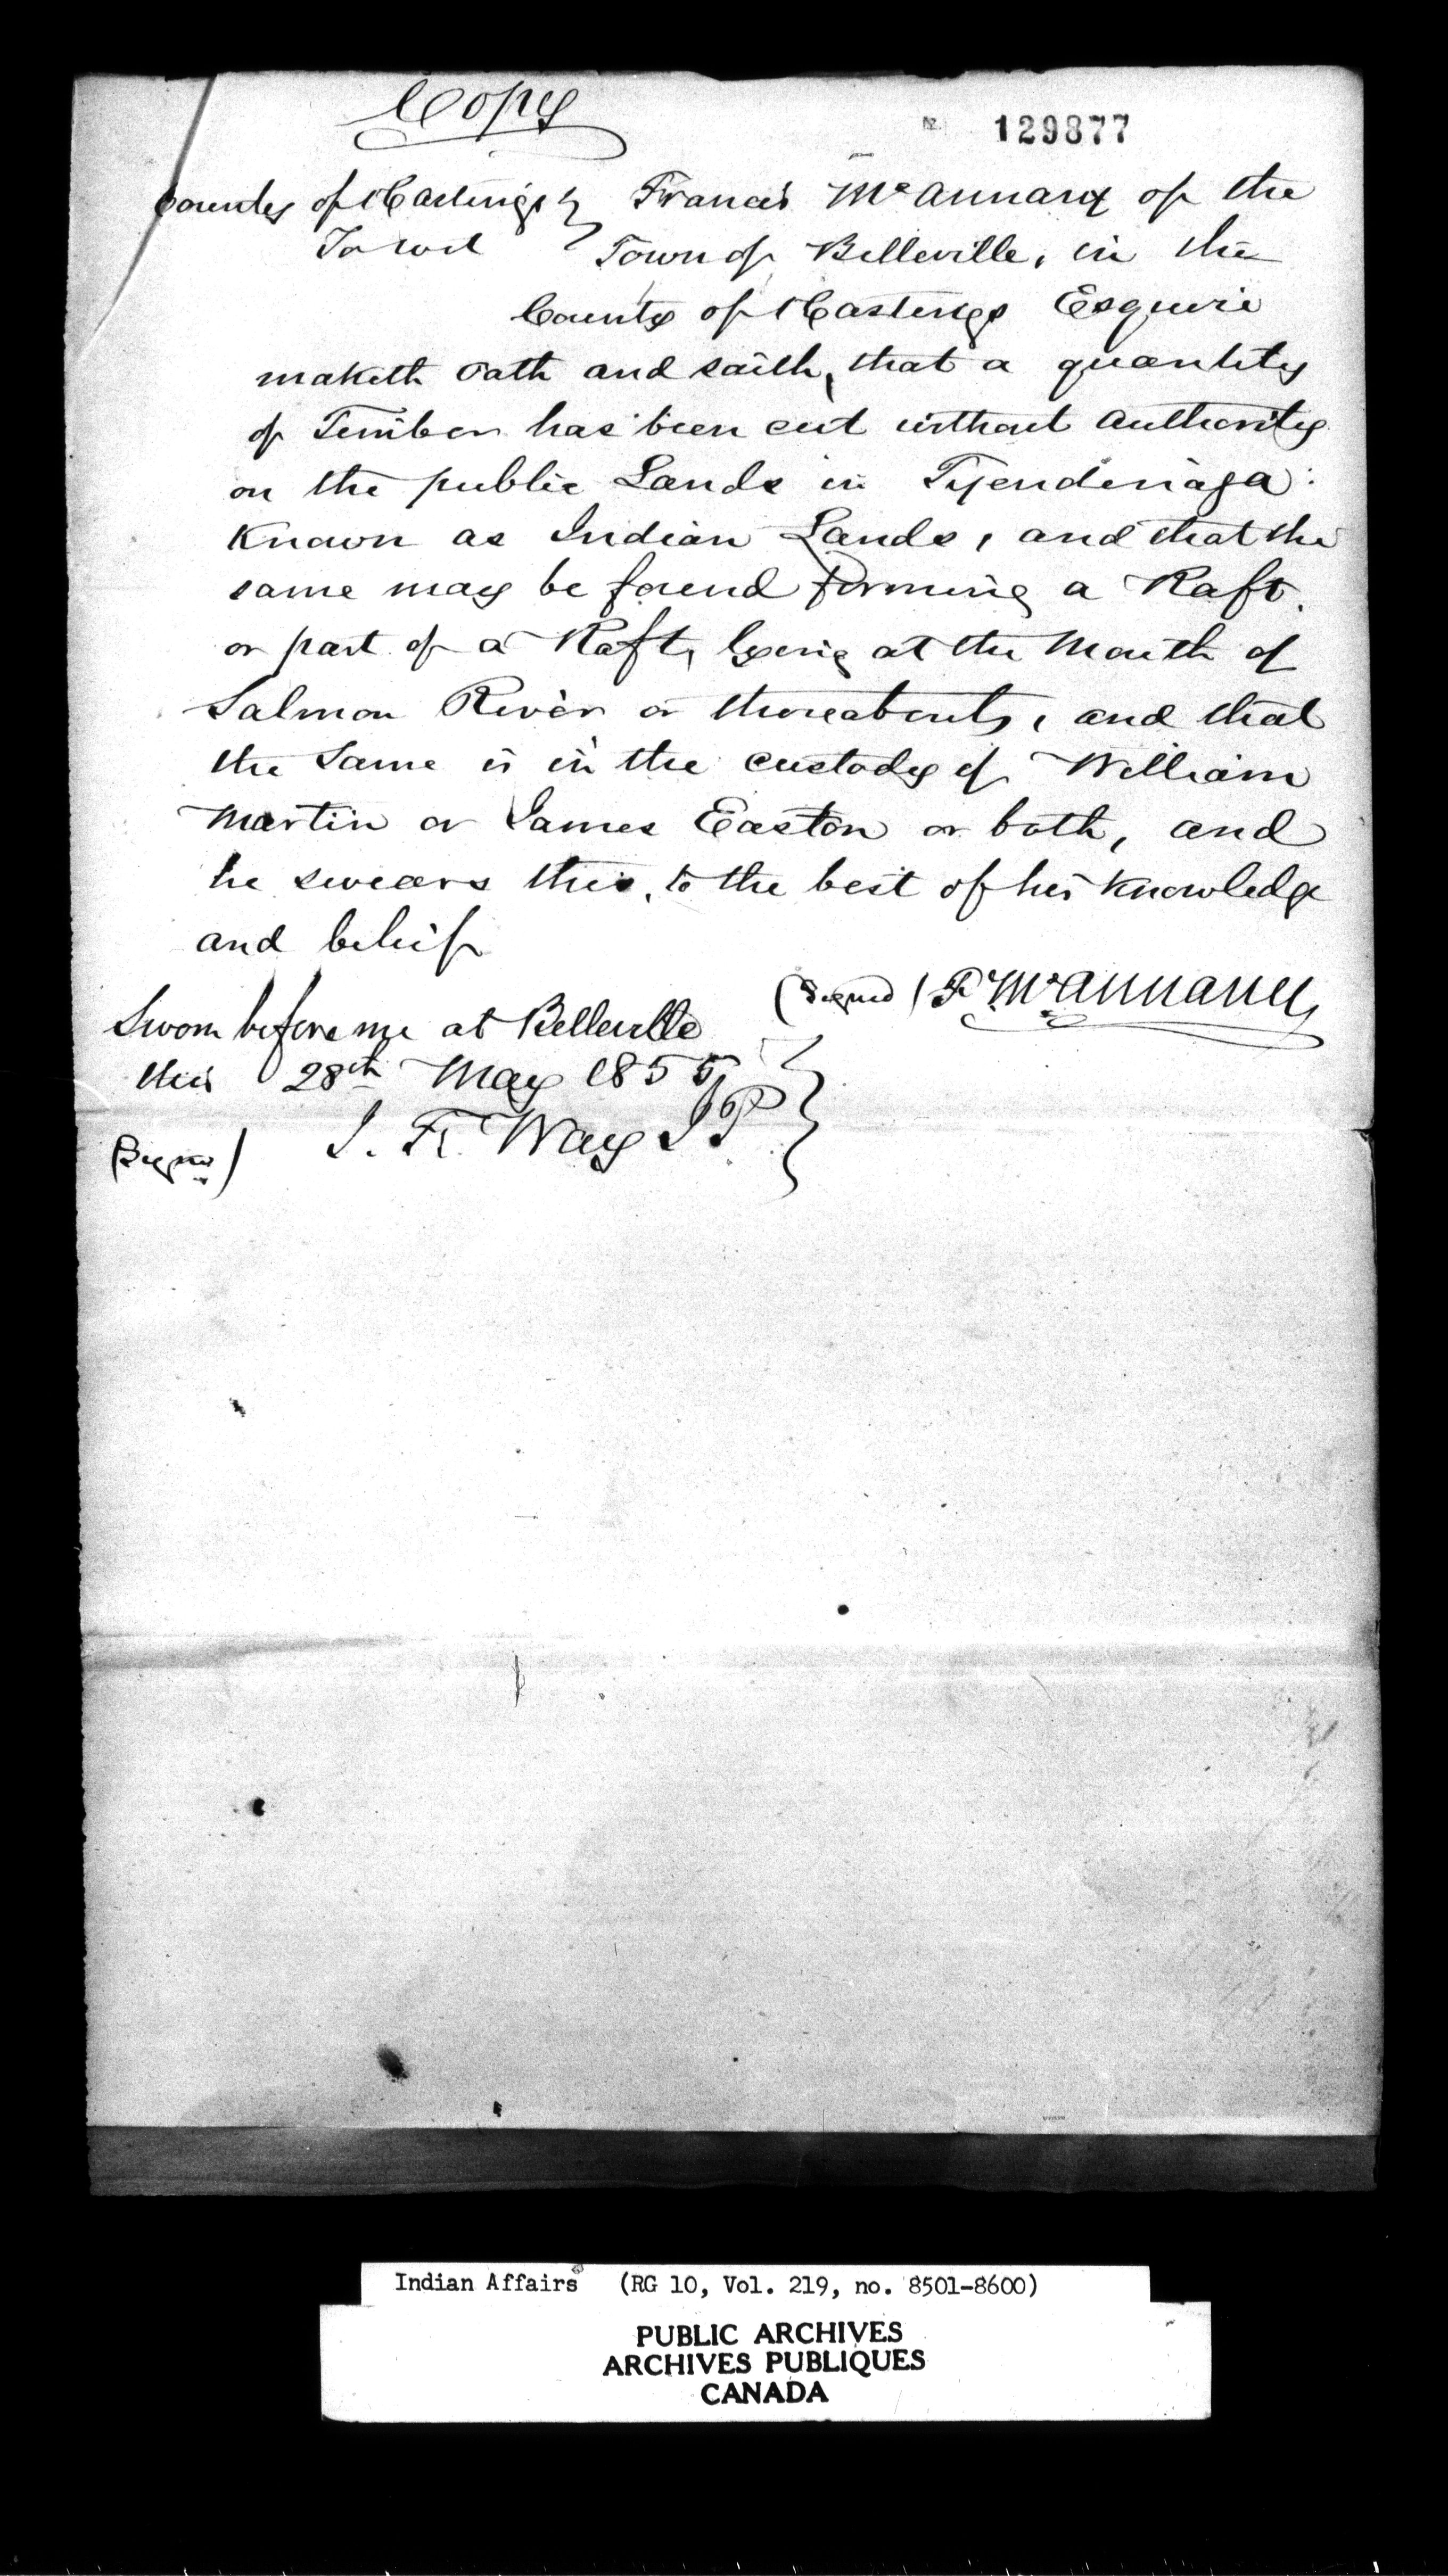 Copy
129877
County of Hastings } Francis McAnnany of the
To wit } Town of Belleville, in the
County of Hastings Esquire
maketh oath and saith, that a quantity
of Timber has been cut without authority
on the public Lands in Tyendinaga
Known as Indian Lands, and that the
same may be found forming a Raft
or part of a Raft, lying at the Mouth of
Salmon River or thereabouts, and that
the Same is in the custody of William
Martin or James Easton or both, and
he swears this, to the best of his Knowledge
and belief
(Signed) F McAnnany
Sworn before me at Belleville
this 28th May 1855
(Signed) J. F. Way JP
Indian Affairs (RG 10, Vol. 219, no. 8501-8600)
PUBLIC ARCHIVES
ARCHIVES PUBLIQUES
CANADA